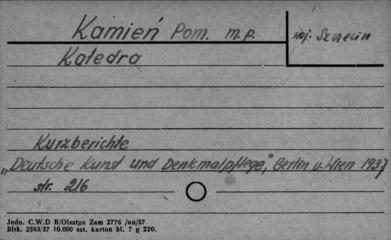 Kamień Pom. m.p.
woj. Szczecin
Katedra
Kurzberichte
"Deutsche Kunst und Denkmalpflege", Berlin u. Wien 1937
str. 216
Jedn. C.W.D B/Olsztyn Zam 2776 /on/57
Blhk. 2563/57 10.000 szt. karton kl. 7 g 220.